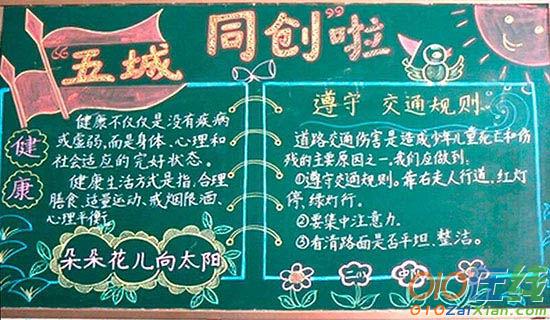 “五城同创”啦
健康
健康不仅仅是没有疾病
或虚弱,而是身体、心理和
社会适应的完好状态。
健康生活方式是指,合理
膳食、适量运动、戒烟限酒、
心理平衡。
朵朵花儿向太阳
遵守 交通规则。
道路交通伤害是造成少年儿童死亡和伤
残的主要原因之一,我们应做到:
①遵守交通规则。靠右走人行道,红灯
停,绿灯行。
②要集中注意力.
③看清路面是否平坦、整洁。
二(1)中
010在线
010zaixian.com